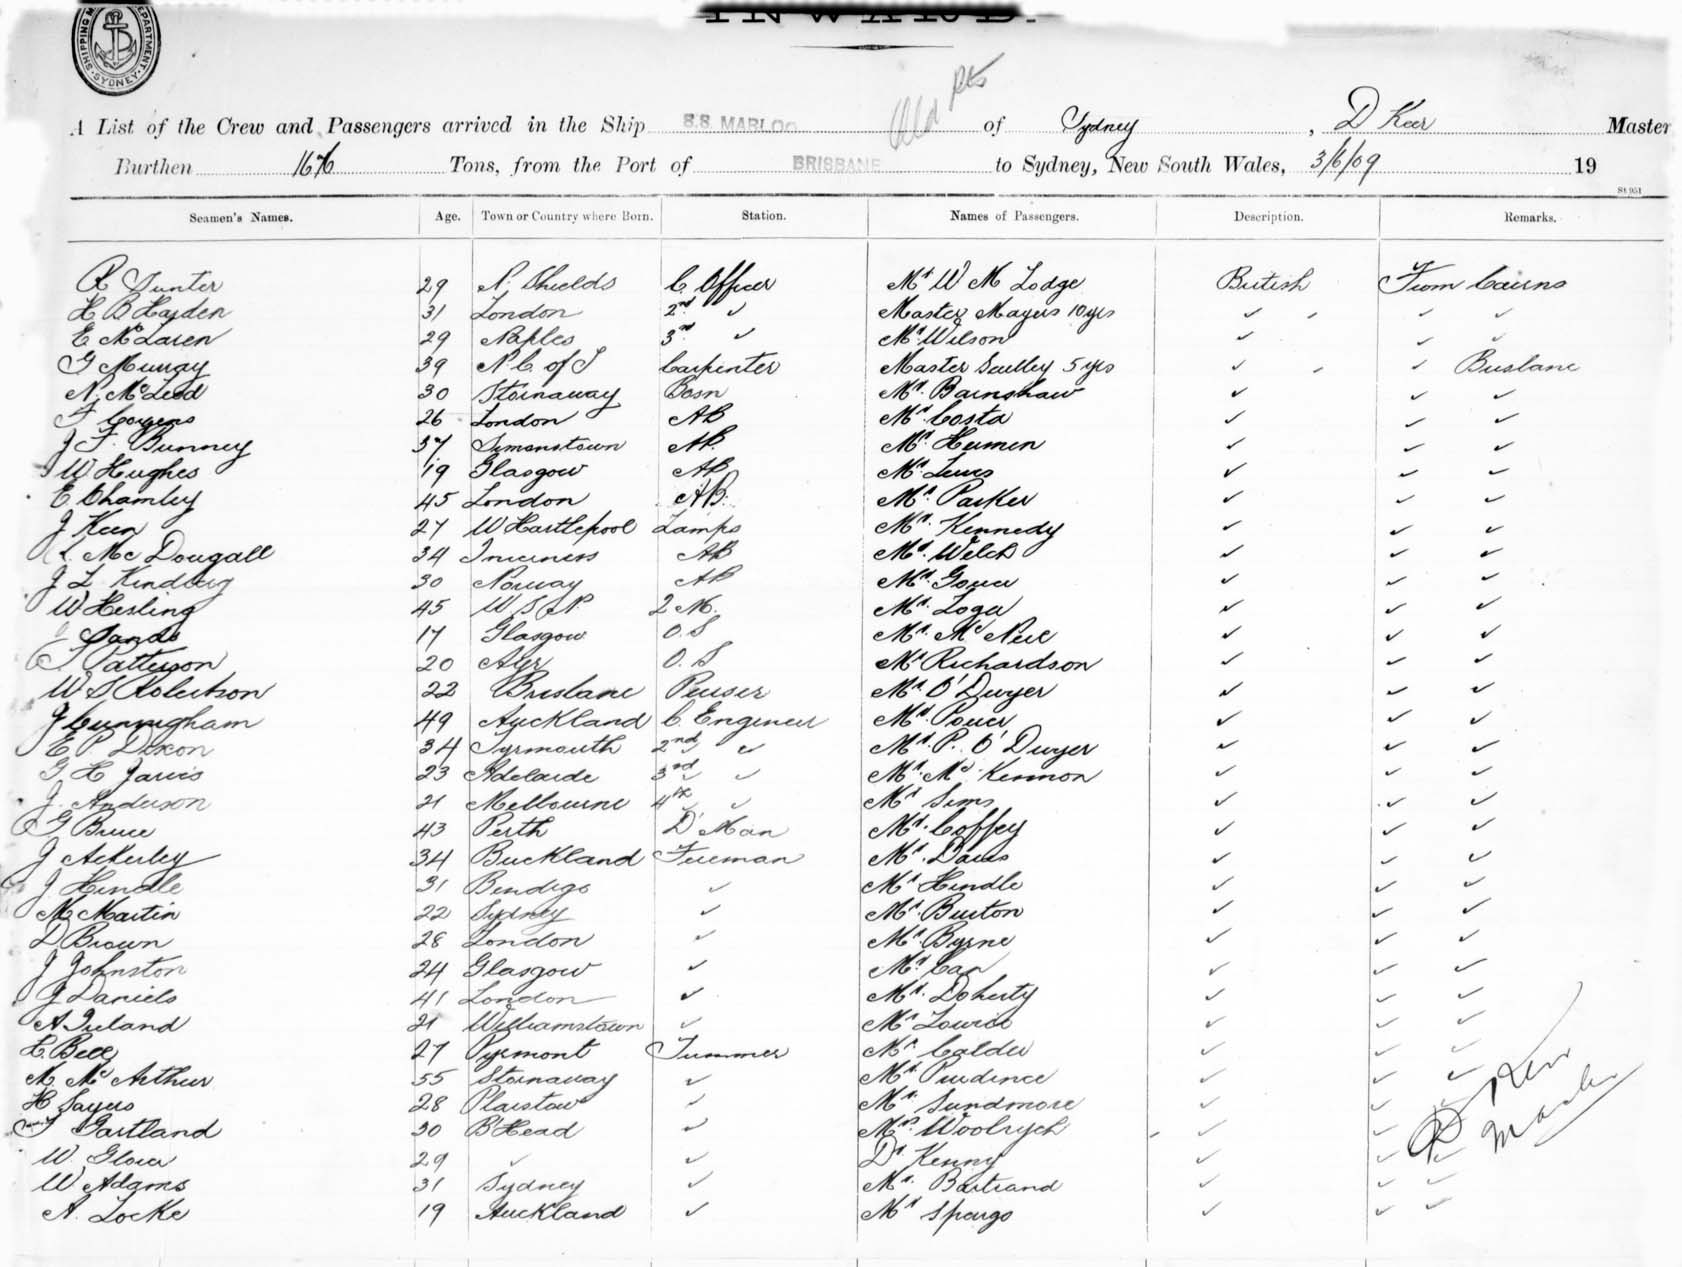 SHIPPING M DEPARTMENT · SYDNEY ·
INWARD.
Old
A List of the Crew and Passengers arrived in the Ship S.S. MARLOO of Sydney, D Keer Master
Burthen 1676 Tons, from the Port of BRISBANE to Sydney, New South Wales, 3/6/09 19
St 951
Seamen's Names. Age. Town or Country where Born. Station. Names of Passengers. Description. Remarks.
R Hunter 29 N. Shields C. Officer Mr W M Lodge British From Cairns
H B Hayden 31 London 2nd ✓ Master Mayers 10 yrs ✓ ✓ ✓
E McLaren 29 Naples 3rd ✓ Mr Wilson ✓ ✓ ✓
G Murray 39 N. C. of T Carpenter Master Scelley 5 yrs ✓ ✓ Brisbane
N. McLeod 30 Stornaway Bosn Mr. Barnshaw ✓ ✓ ✓
F 26 London AB Mr. Costa ✓ ✓ ✓
J F. Bunney 37 Simonstown AB. Mr. ✓ ✓ ✓
W Hughes 19 Glasgow AB Mr. Lewis ✓ ✓ ✓
E Chamley 45 London AB. Mr. Parker ✓ ✓ ✓
J Keen 27 W Hartlepool Lamps Mr. Kennedy ✓ ✓ ✓
McDougall 34 Inverness AB Mr. Welch ✓ ✓ ✓
J L 30 Norway AB Mr. Gower ✓ ✓ ✓
W Hesling 45 W S N. 2 M. Mr. Loga ✓ ✓ ✓
Sands 17 Glasgow O. S Mr. McNeil ✓ ✓ ✓
T Patterson 20 Ayr O. S Mr Richardson ✓ ✓ ✓
W S Robertson 22 Brisbane Purser Mr. O'Dwyer ✓ ✓ ✓
J Cunningham 49 Auckland C. Engineer Mr. Power ✓ ✓ ✓
E. P. Dixon 34 Tyrmouth 2nd ✓ Mr. P. O'Dwyer ✓ ✓ ✓
G H Jarvis 23 Adelaide 3rd ✓ Mr. McKennon ✓ ✓ ✓
J. Anderson 21 Melbourne 4th ✓ Mr Sims ✓ ✓ ✓
G Bruce 43 Perth D'Man Mr. Coffey ✓ ✓ ✓
J Ackerley 34 Buckland Fireman Mr. Davis ✓ ✓ ✓
J Hindle 31 Bendigo ✓ Mr Hindle ✓ ✓ ✓
M Martin 22 Sydney ✓ Mr. Burton ✓ ✓ ✓
D Brown 28 London ✓ Mr. Byrne ✓ ✓ ✓
J Johnston 24 Glasgow ✓ Mr. Carr ✓ ✓ ✓
J Daniels 41 London ✓ Mr. Doherty ✓ ✓ ✓
A Ireland 21 Williamstown ✓ Mr Lowrie ✓ ✓ ✓
L. Bell 27 Pyrmont Trimmer Mr. Calder ✓ ✓ ✓
M. McArthur 55 Stornaway ✓ Mr Prudence ✓ ✓ ✓
H Sayers 28 Plaistow ✓ Mr. Sundmore ✓ ✓
T Gartland 30 B Head ✓ Mrs. Woolrych ✓ ✓
W. Glover 29 ✓ ✓ Dr. Kenny ✓ ✓ ✓
W Adams 31 Sydney ✓ Mr. Bertrand ✓ ✓ ✓
A. Locke 19 Auckland ✓ Mr Spargo ✓ ✓ ✓
D Keer
Master